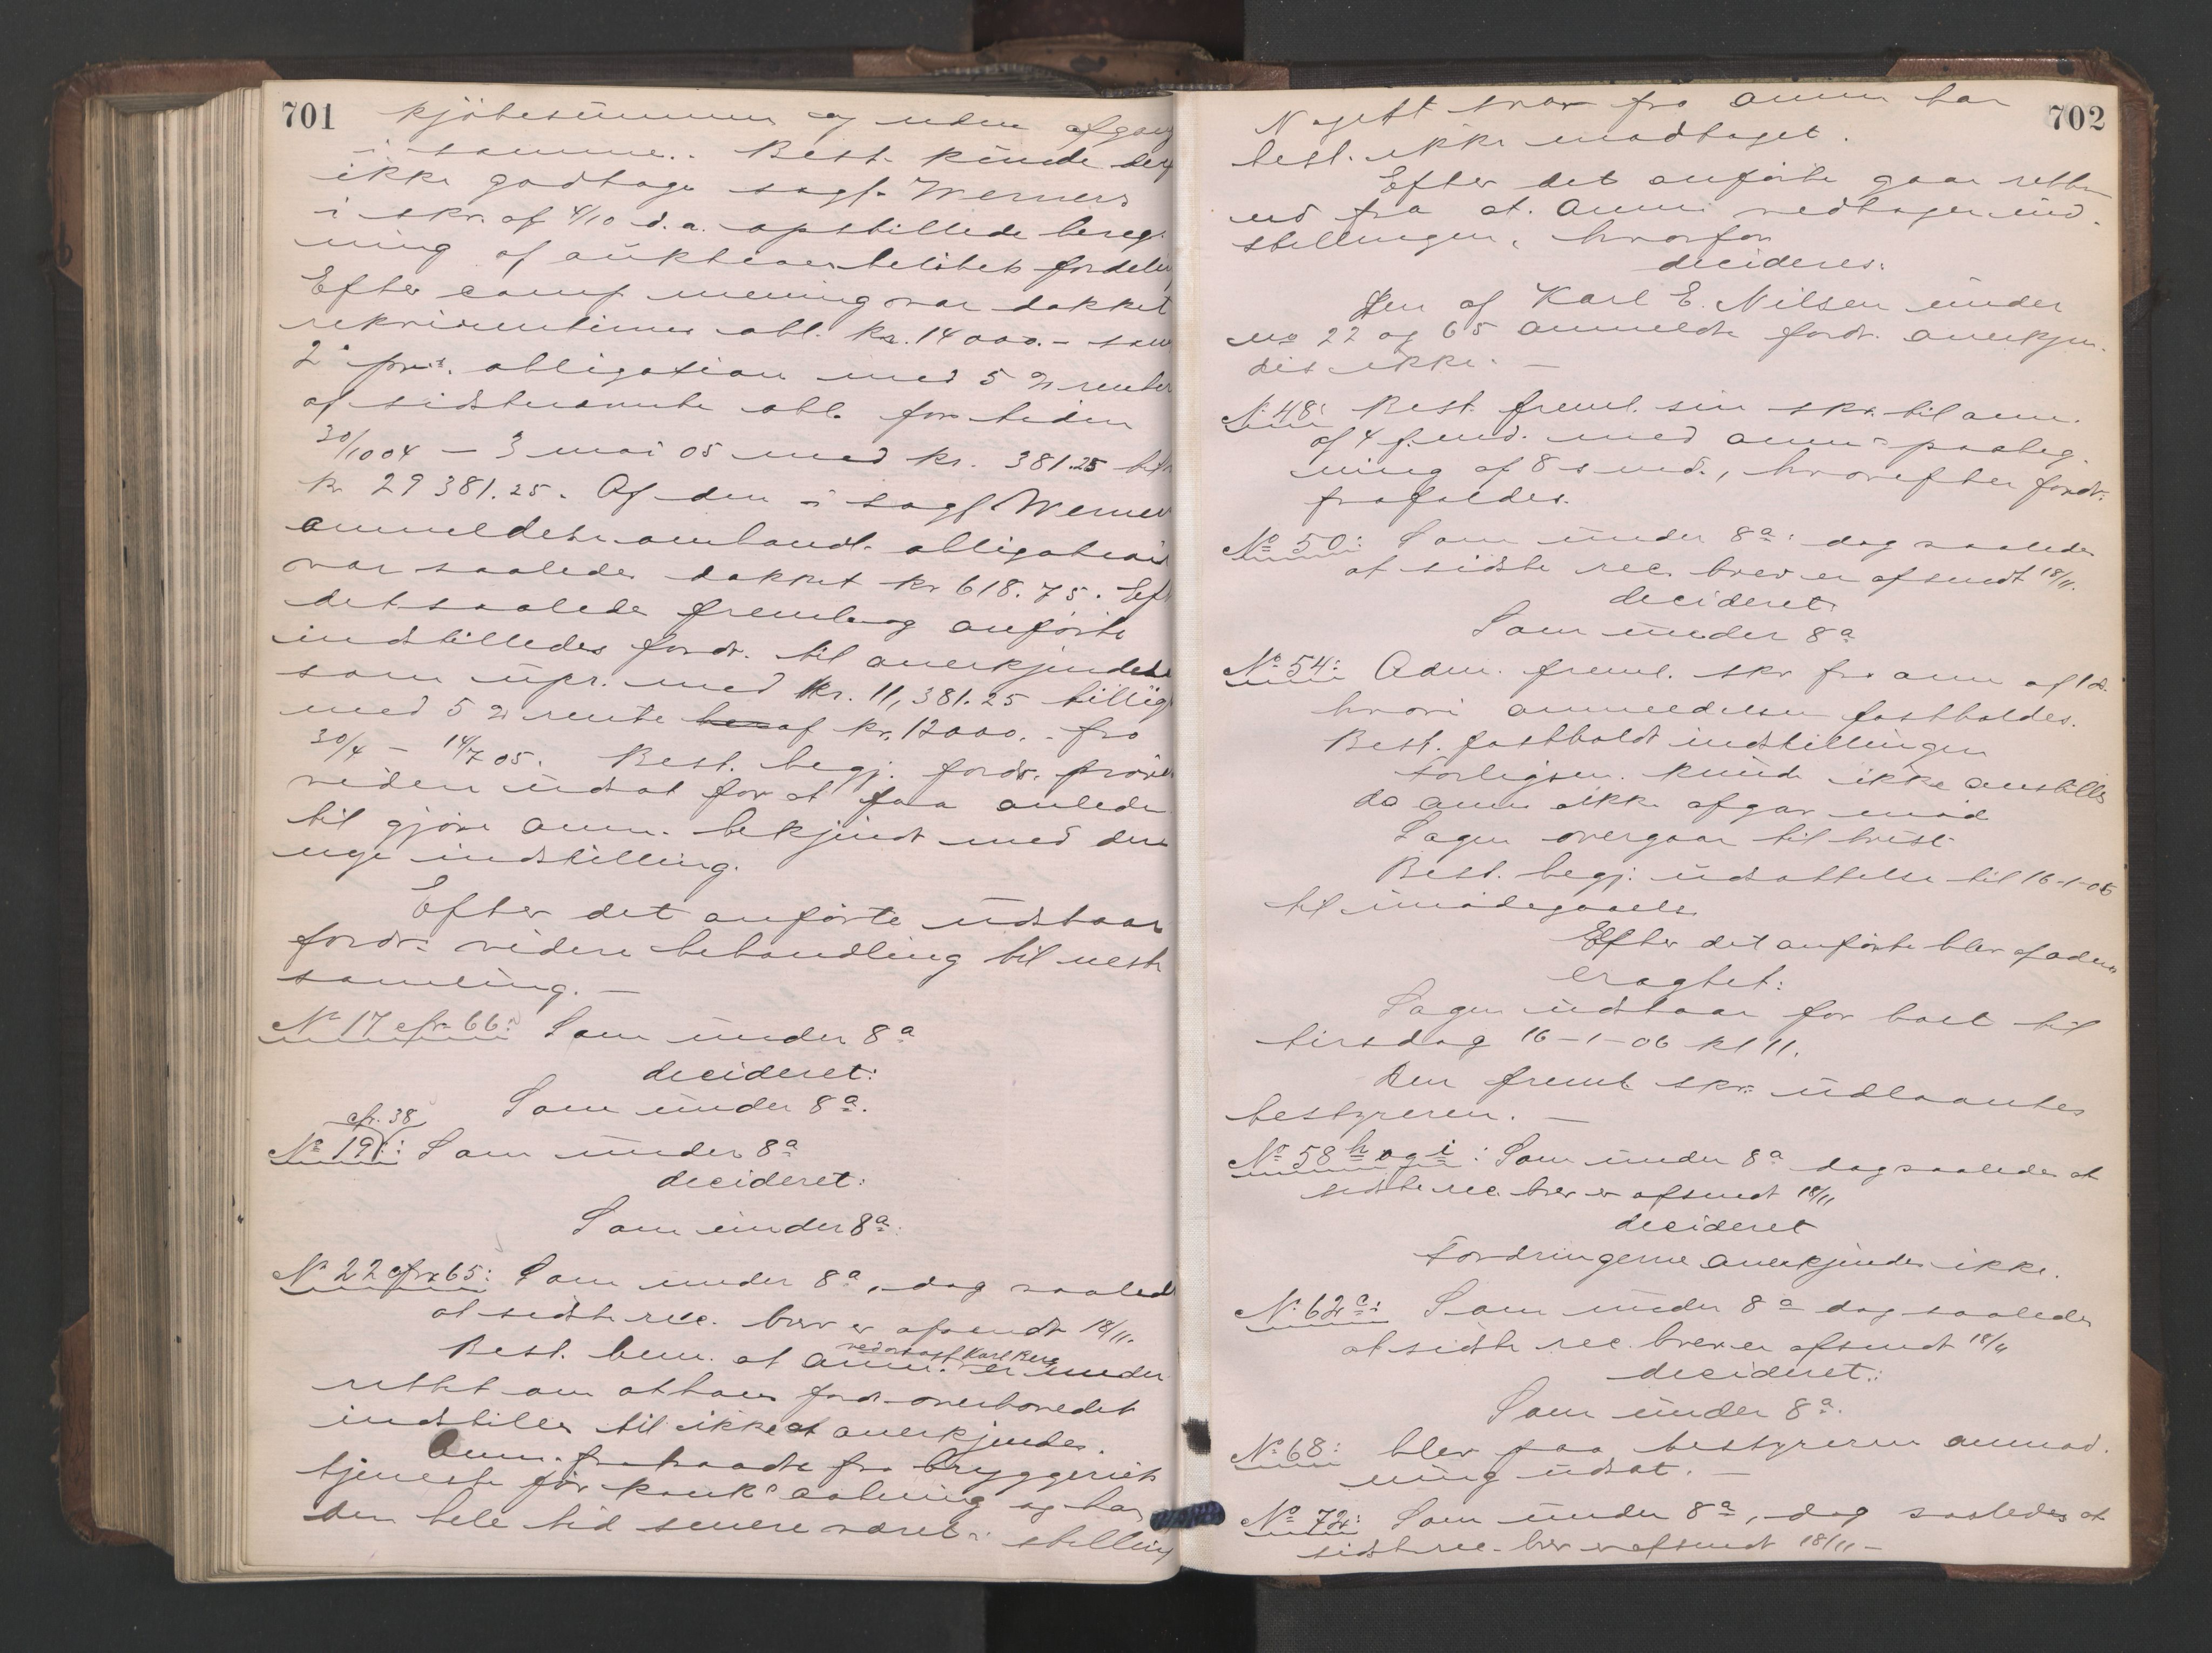 701
kjöbesummen og uden afgang
i samme. Best. kunde derf
ikke godtage sagf. Werners
i skr. af 4/10 d.a. opstillede bereg-
ning af auktionsbeløbets fordeling
Efter comp. mening var dækket
rekvirentinnes obl. kr. 14 000.- som
2' pr. obligation med 5 % renter
af sidstnævnte obl. for tiden
30/10 04 - 3 mai 05 med kr. 381.25
kr 29381.25. Af den i sagf Werners
anmeldelse omhandl. obligation
var saaledes dækket kr 618.75. Eft
det saaledes freml. og anførte
indstilledes fordr. til anerkjendelse
som upr. med kr. 11,381.25 tillig
med 5 % rente af kr. 12000.- fra
30/4 - 14/7 05. Best. begj. fordr. prøvel
videre udsat for at faa anledn
til gjøre anm. bekjendt med den
nye indstilling.
Efter det anførte udstaar
fordr: videre behandling til neste
samling. -
No 17 cfr 66: Som under 8a
decideret:
Som under 8a.
cfr. 38
No 19: Som under 8a
decideret:
Som under 8a.
No 22 cfr 65: Som under 8a, dog saaled
at sidste rec. brev er afsendt 18/11.
ved advokat Karl Berg
Best. bem. at anm. er under-
rettet om at hans fordr overhovedet
indstilles til ikke at anerkjendes.
Anm. fratraadte fra bryggeriets
tjeneste før konk's aabning og har
den hele tid senere været i stilling
702
Noget svar fra anm har
best. ikke modtaget.
Efter det anførte gaar retten
ud fra at anm vedtager ind-
stillingen, hvorfor
decideres:
Den af Karl E. Nilsen under
no 22 og 65 anmeldte fordr. anerkjen-
des ikke. -
No 48: Best. freml. sin skr. til anm.
af 4 f. md. med anm's paateg-
ning af 8 s md., hvorefter fordr.
frafaldes.
No 50: Som under 8a: dog saaledes
at sidste rec. brev er afsendt 18/11.
decideret
Som under 8a
No 54: Adm. freml. skr fra anm af 12.
hvori anmeldelsen fastholdes.
Best. fastholdt indstillingen
Forligsm. kunde ikke anstilles
da anm ikke afgav møde
Sagen overgaar til tvist.
Best. begj. udsættelse til 16-1-06
til imødegaaelse
Efter det anførte blev af adm
eragtet:
Sagen udstaar for best til
tirsdag 16-1-06 kl 11.
Den freml. skr: udlaantes
bestyreren. -
No 58 h og i: Som under 8a dog saaledes at
sidste rec. brev er afsendt 18/11
decideret
Fordringerne anerkjendes ikke.
No 62 c: Som under 8a dog saaledes
at sidste rec. brev er afsendt 18/11
decideret:
Som under 8a.
No 68: blev paa bestyreren anmod-
ning udsat. -
No 72: Som under 8a, dog saaledes at
sidste rec. brev er afsendt 18/11 -